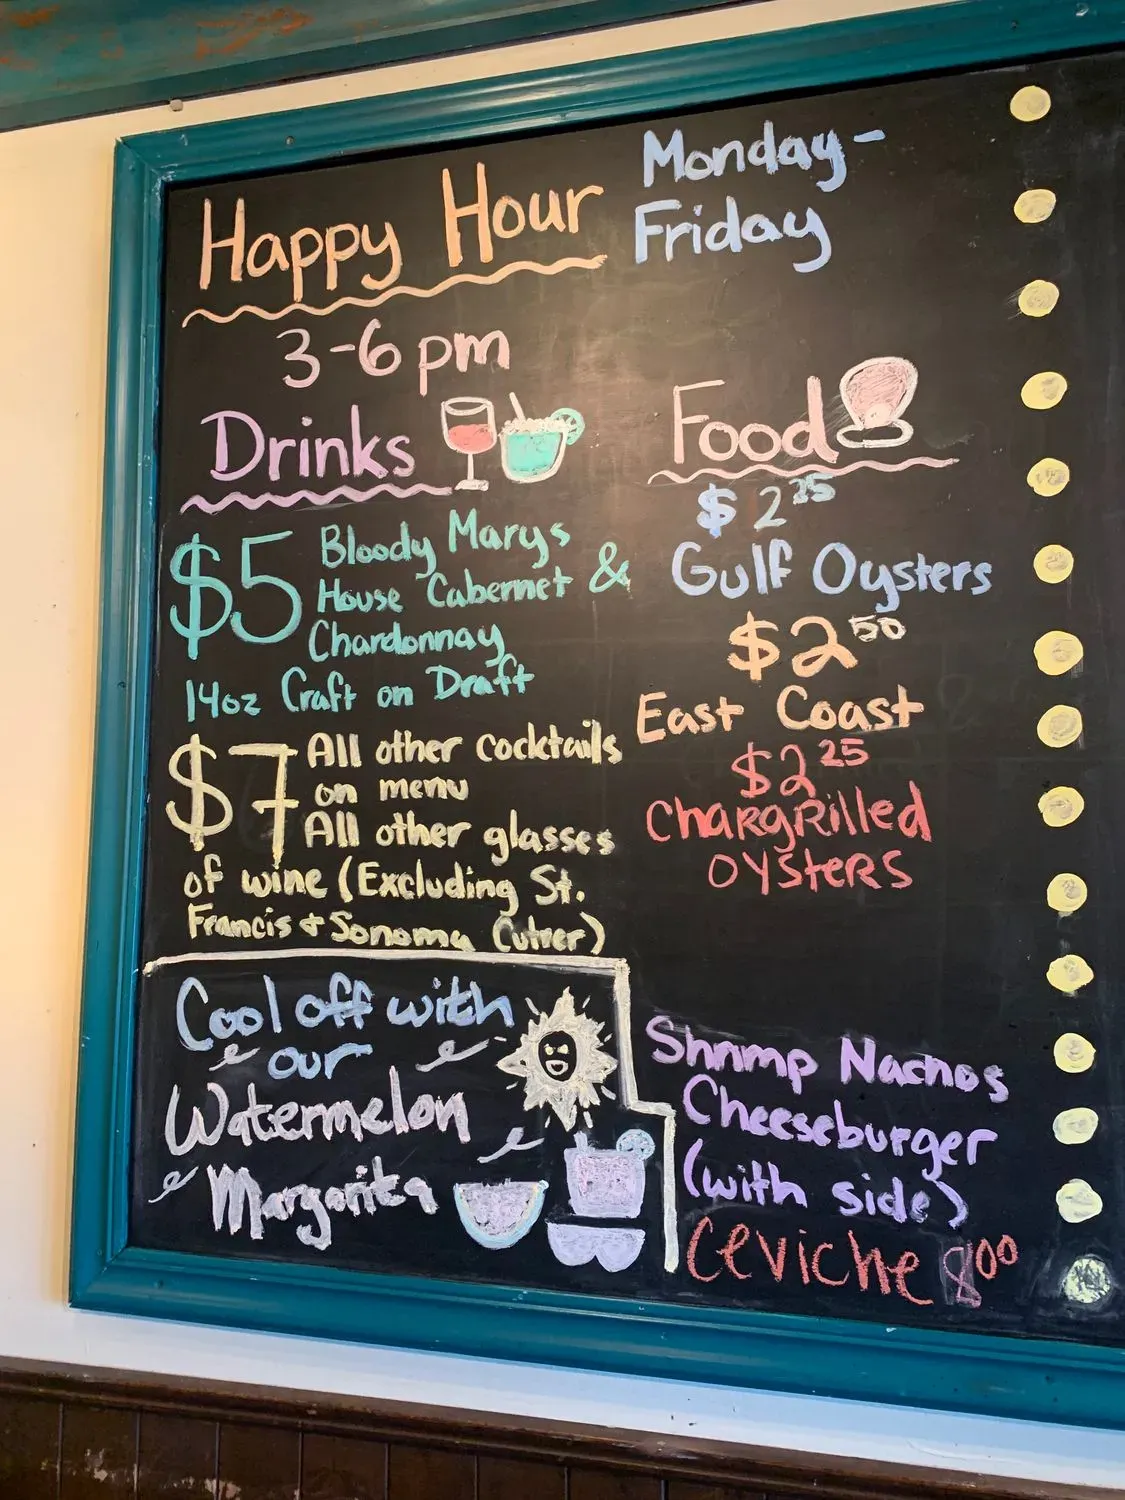 Happy Hour
Monday-
Friday
3-6 pm
Drinks
$5 Bloody Marys
House Cabernet &
Chardonnay
14oz Craft on Draft
$7 All other cocktails
on menu
All other glasses
of wine (Excluding St.
Francis + Sonoma Cutrer)
Cool off with
our
Watermelon
Margarita
Food
$2 25
Gulf Oysters
$2 50
East Coast
$2 25
ChaRgRilled
OysteRs
Shrimp Nachos
Cheeseburger
(with side)
Ceviche 8 00